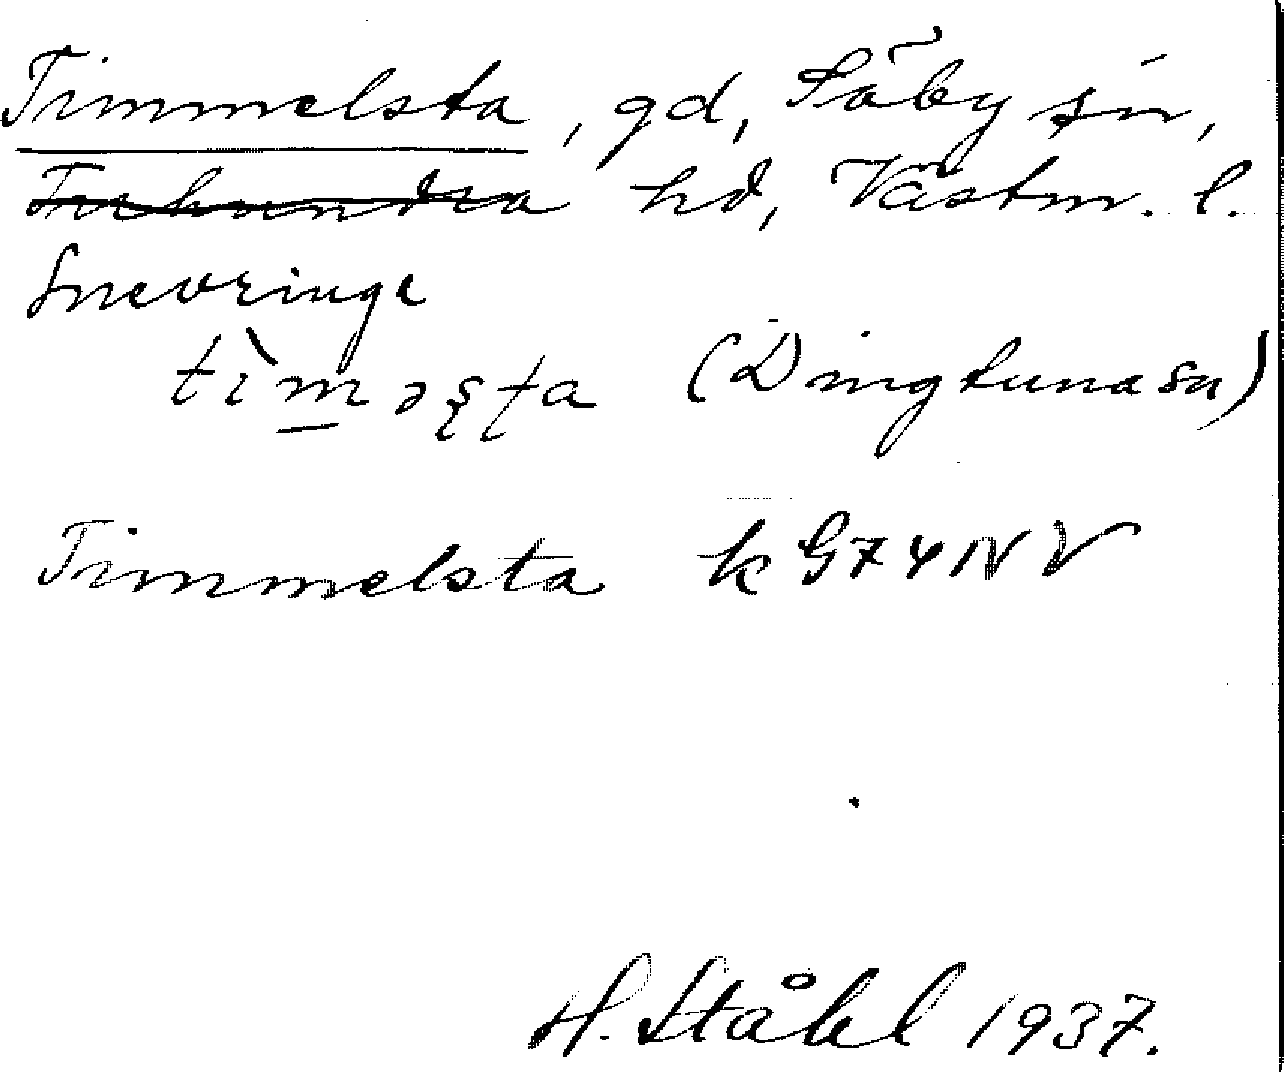 Timmelsta, gd, Säby sn,
Tuhundra hd, Västm. l.
Snevringe
tìm̲əʂʈa (Dingtuna sn)
Timmelsta k G74NV
H. Ståhl 1937.